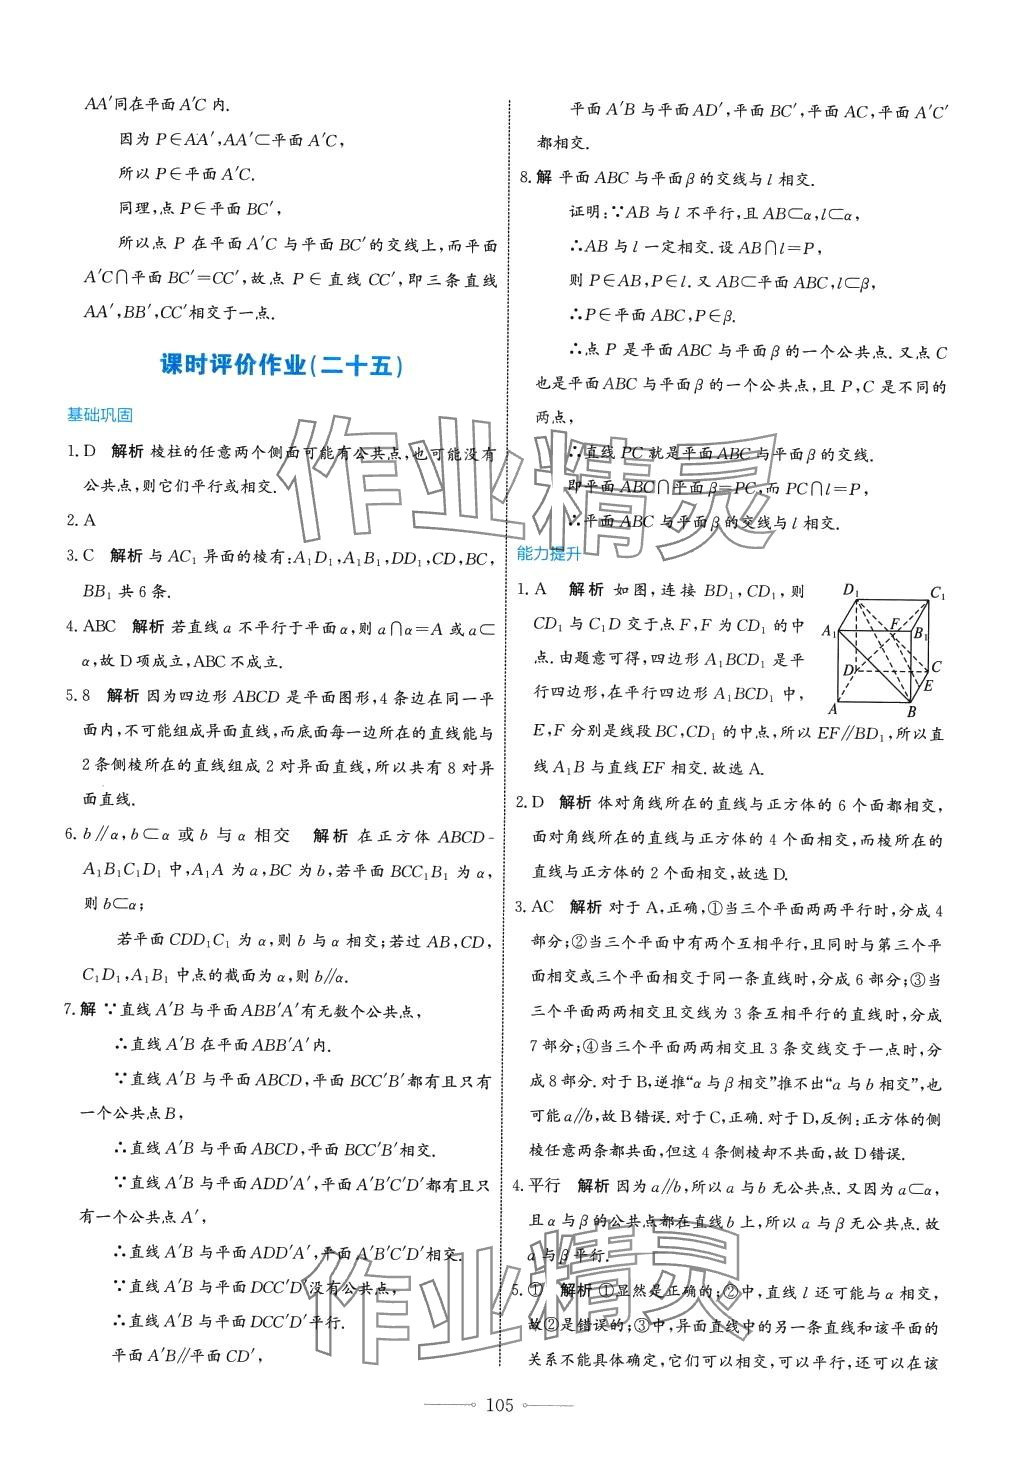 AA′同在平面 A′C 内.
因为 P∈AA′,AA′⊂平面 A′C,
所以 P∈平面 A′C.
同理,点 P∈平面 BC′,
所以点 P 在平面 A′C 与平面 BC′的交线上,而平面
A′C∩平面 BC′=CC′,故点 P∈直线 CC′,即三条直线
AA′,BB′,CC′相交于一点.
课时评价作业(二十五)
基础巩固
1. D 解析 棱柱的任意两个侧面可能有公共点,也可能没有
公共点,则它们平行或相交.
2. A
3. C 解析 与 AC₁ 异面的棱有:A₁D₁,A₁B₁,DD₁,CD,BC,
BB₁ 共 6 条.
4. ABC 解析 若直线 a 不平行于平面 α,则 a∩α=A 或 a⊂
α,故 D 项成立,ABC 不成立.
5. 8 解析 因为四边形 ABCD 是平面图形,4 条边在同一平
面内,不可能组成异面直线,而底面每一边所在的直线能与
2 条侧棱所在的直线组成 2 对异面直线,所以共有 8 对异
面直线.
6. b∥α,b⊂α 或 b 与 α 相交 解析 在正方体 ABCD-
A₁B₁C₁D₁ 中,A₁A 为 a,BC 为 b,若平面 BCC₁B₁ 为 α,
则 b⊂α;
若平面 CDD₁C₁ 为 α,则 b 与 α 相交;若过 AB,CD,
C₁D₁,A₁B₁ 中点的截面为 α,则 b∥α.
7. 解 ∵直线 A′B 与平面 ABB′A′有无数个公共点,
∴直线 A′B 在平面 ABB′A′内.
∵直线 A′B 与平面 ABCD,平面 BCC′B′都有且只有
一个公共点 B,
∴直线 A′B 与平面 ABCD,平面 BCC′B′相交.
∵直线 A′B 与平面 ADD′A′,平面 A′B′C′D′都有且只
有一个公共点 A′,
∴直线 A′B 与平面 ADD′A′,平面 A′B′C′D′相交.
∵直线 A′B 与平面 DCC′D′没有公共点,
∴直线 A′B 与平面 DCC′D′平行.
平面 A′B∥平面 CD′,
平面 A′B 与平面 AD′,平面 BC′,平面 AC,平面 A′C′
都相交.
8. 解 平面 ABC 与平面 β 的交线与 l 相交.
证明:∵AB 与 l 不平行,且 AB⊂α,l⊂α,
∴AB 与 l 一定相交.设 AB∩l=P,
则 P∈AB,P∈l.又 AB⊂平面 ABC,l⊂β,
∴P∈平面 ABC,P∈β.
∴点 P 是平面 ABC 与平面 β 的一个公共点.又点 C
也是平面 ABC 与平面 β 的一个公共点,且 P,C 是不同的
两点,
∴直线 PC 就是平面 ABC 与平面 β 的交线.
即平面 ABC∩平面 β=PC,而 PC∩l=P,
∴平面 ABC 与平面 β 的交线与 l 相交.
能力提升
1. A 解析 如图,连接 BD₁,CD₁,则
CD₁ 与 C₁D 交于点 F,F 为 CD₁ 的中
点.由题意可得,四边形 A₁BCD₁ 是平
行四边形,在平行四边形 A₁BCD₁ 中,
E,F 分别是线段 BC,CD₁ 的中点,所以 EF∥BD₁,所以直
线 A₁B 与直线 EF 相交.故选 A.
D₁
C₁
A₁
F
B₁
D
C
E
A
B
2. D 解析 体对角线所在的直线与正方体的 6 个面都相交,
面对角线所在的直线与正方体的 4 个面相交,而棱所在的
直线与正方体的 2 个面相交,故选 D.
3. AC 解析 对于 A,正确,①当三个平面两两平行时,分成 4
部分;②当三个平面中有两个互相平行,且同时与第三个平
面相交或三个平面相交于同一条直线时,分成 6 部分;③当
三个平面两两相交且交线为 3 条互相平行的直线时,分成
7 部分;④当三个平面两两相交且 3 条交线交于一点时,分
成 8 部分.对于 B,逆推“α 与 β 相交”推不出“a 与 b 相交”,也
可能 a∥b,故 B 错误.对于 C,正确.对于 D,反例:正方体的侧
棱任意两条都共面,但这 4 条侧棱却不共面,故 D 错误.
4. 平行 解析 因为 a∥b,所以 a 与 b 无公共点.又因为 a⊂α,
且 α 与 β 的公共点都在直线 b 上,所以 a 与 β 无公共点.故
a 与 β 平行.
5. ① 解析 ①显然是正确的;②中,直线 l 还可能与 α 相交,
故②是错误的;③中,异面直线中的另一条直线和该平面的
关系不能具体确定,它们可以相交,可以平行,还可以在该
105
作业精灵
作业精灵